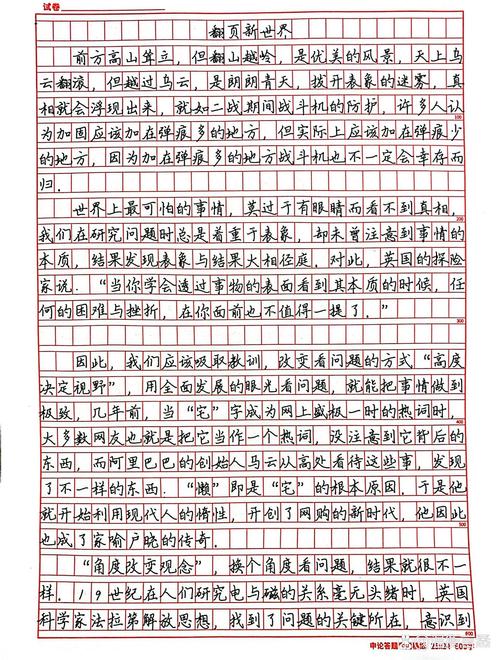 试卷
翻页新世界
前方高山耸立，但翻山越岭，是优美的风景，天上乌
云翻滚，但越过乌云，是朗朗青天，拨开表象的迷雾，真
相就会浮现出来，就如二战期间战斗机的防护，许多人认
为加固应该加在弹痕多的地方，但实际上应该加在弹痕少
的地方，因为加在弹痕多的地方战斗机也不一定会幸存而
归．
100
世界上最可怕的事情，莫过于有眼睛而看不到真相，
200
我们在研究问题时总是着重于表象，却未曾注意到事情的
本质，结果发现表象与结果大相径庭．对此，英国的探险
家说．“当你学会透过事物的表面看到其本质的时候，任
何的困难与挫折，在你面前也不值得一提了．”
300
因此，我们应该吸取教训，改变看问题的方式“高度
决定视野”，用全面发展的眼光看问题，就能把事情做到
极致，几年前，当“宅”字成为网上盛极一时的热词时，
400
大多数网友也就是把它当作一个热词，没注意到它背后的
东西，而阿里巴巴的创始人马云从高处看待这些事，发现
了不一样的东西．“懒”即是“宅”的根本原因．于是他
就开始利用现代人的惰性，开创了网购的新时代，他因此
500
也成了家喻户晓的传奇．
“角度改变观念”，换个角度看问题，结果就很不一
样．19世纪在人们研究电与磁的关系毫无头绪时，英国
科学家法拉第解放思想，找到了问题的关键所在，意识到
600
申论答题